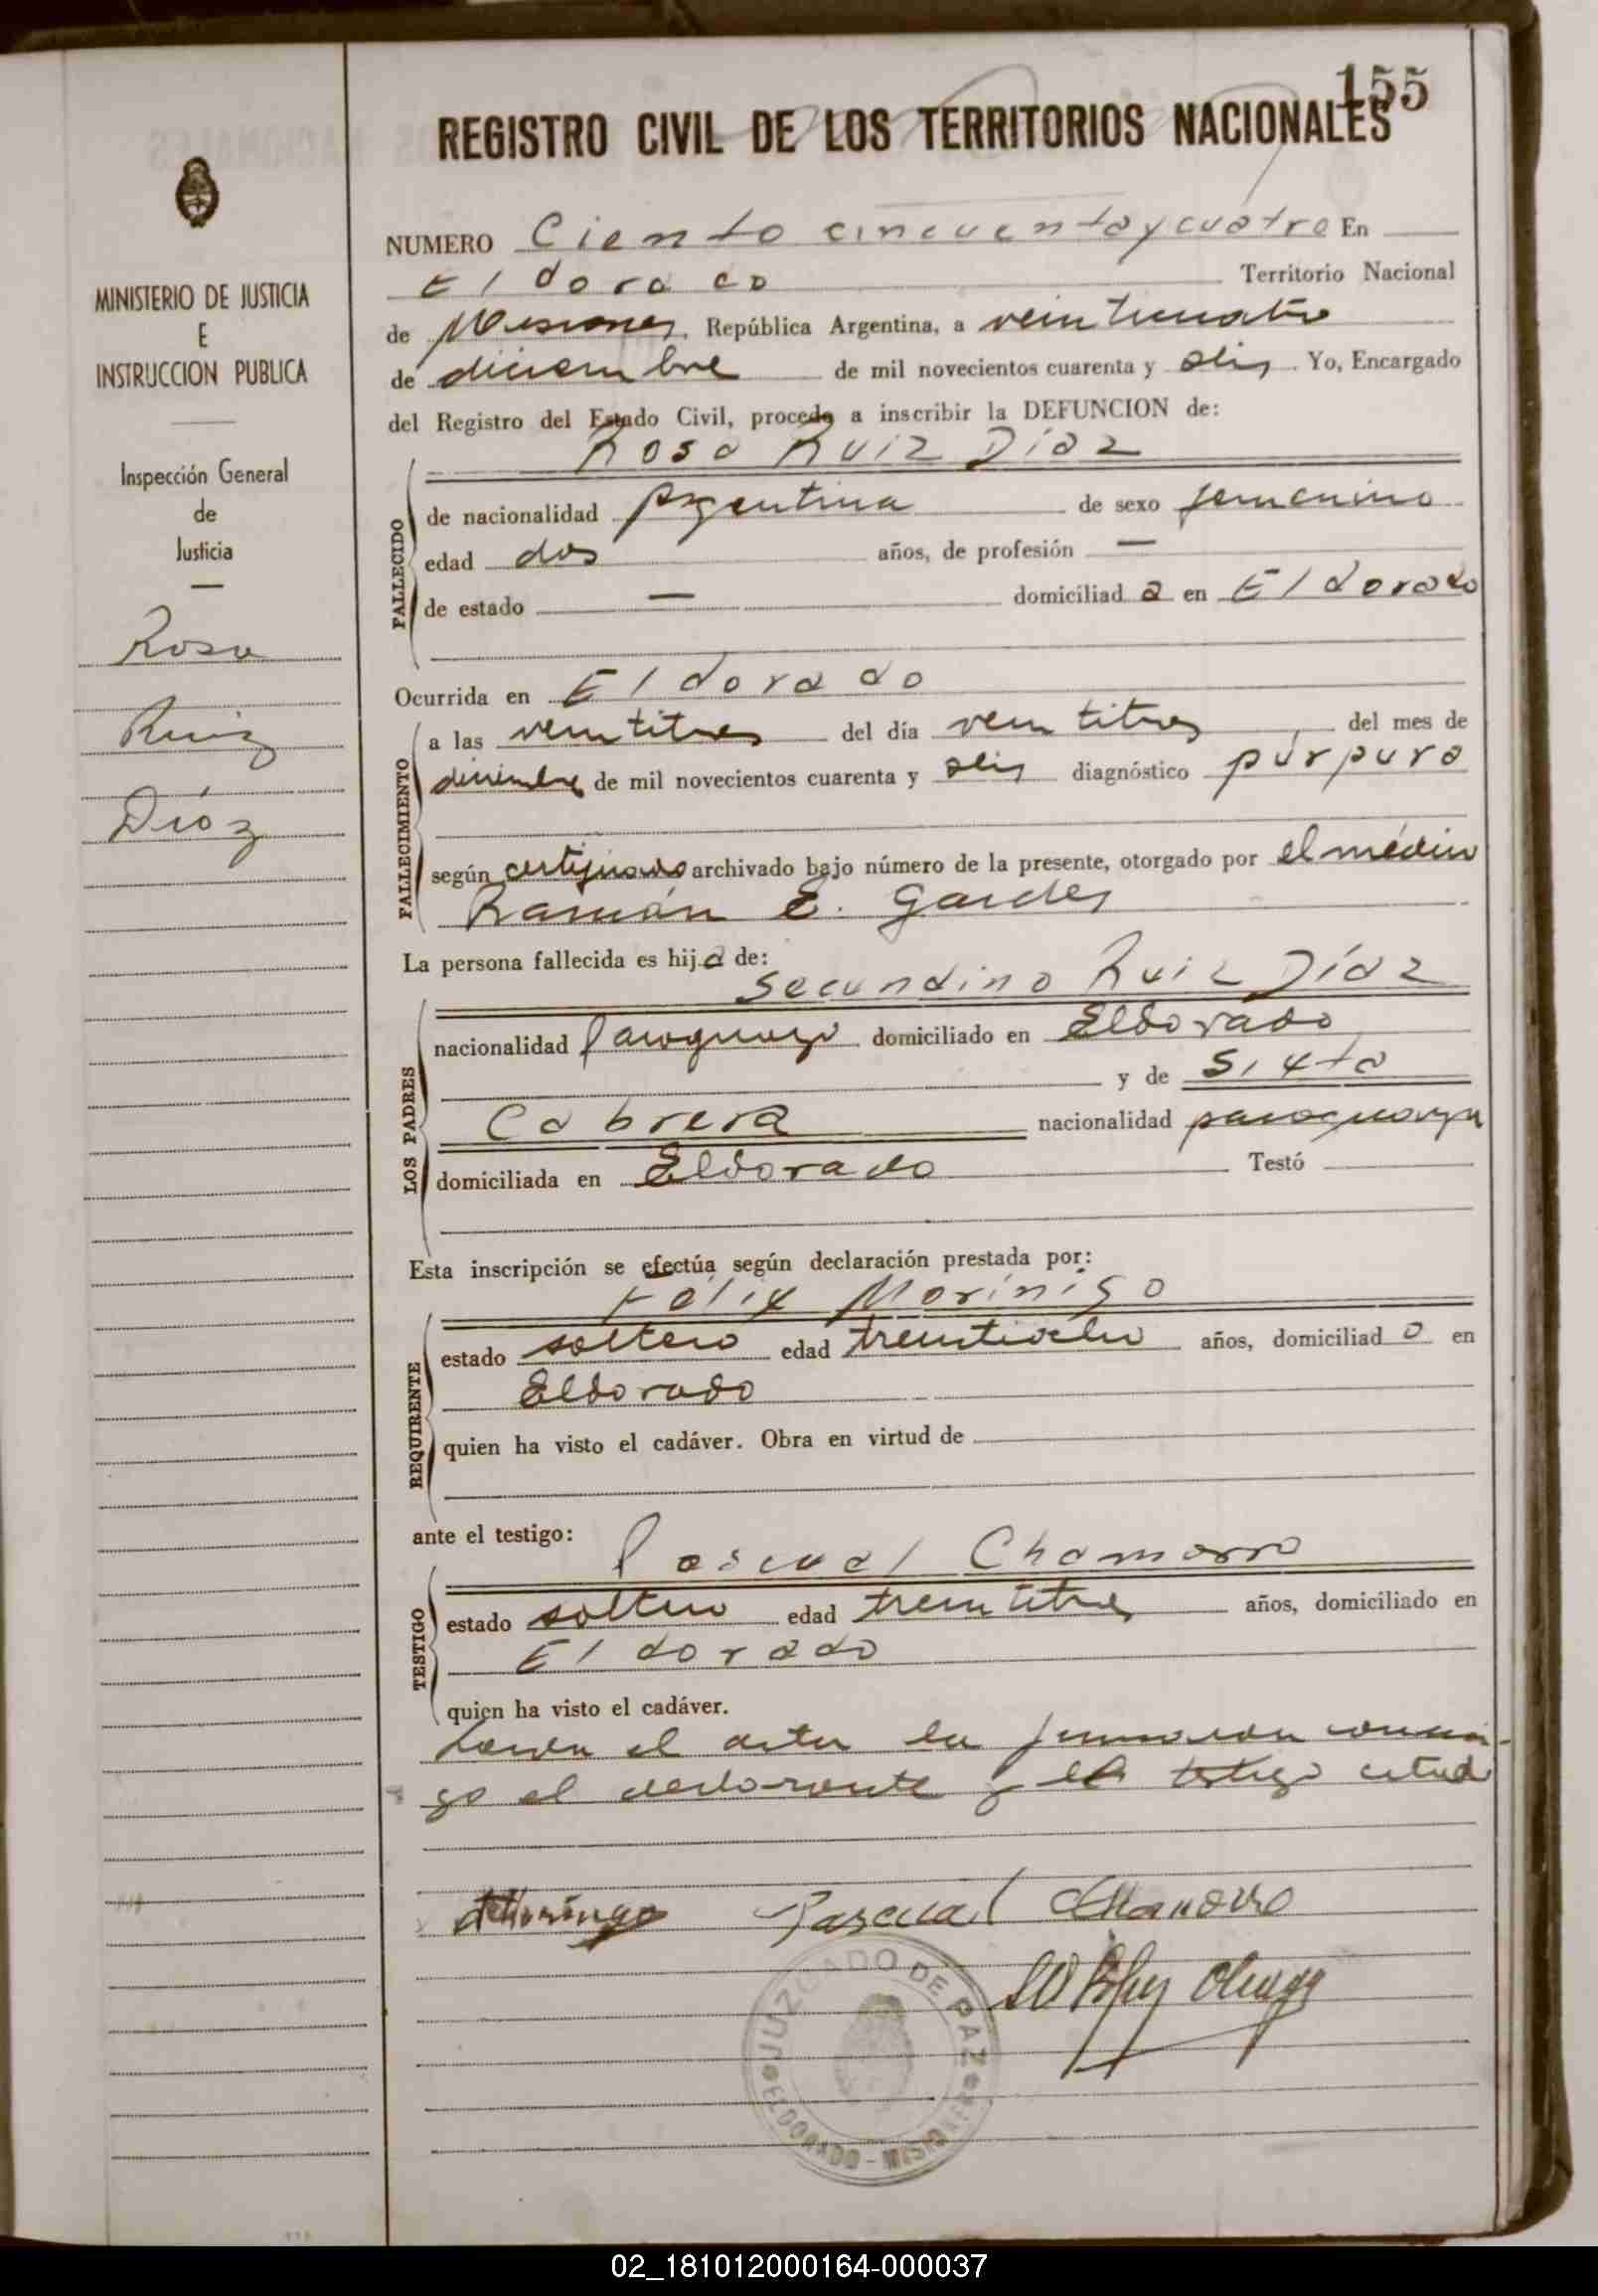 155
REGISTRO CIVIL DE LOS TERRITORIOS NACIONALES
MINISTERIO DE JUSTICIA
E
INSTRUCCION PUBLICA
Inspección General
de
Justicia
Rosa
Ruiz
Díaz
NUMERO Ciento cincuenta y cuatro En
Eldorado Territorio Nacional
de Misiones, República Argentina, a veinticuatro
de diciembre de mil novecientos cuarenta y seis. Yo, Encargado
del Registro del Estado Civil, procedo a inscribir la DEFUNCION de:
Rosa Ruiz Díaz
FALLECIDO
de nacionalidad Argentina de sexo femenino
edad dos años, de profesión —
de estado — domiciliad a en Eldorado
Ocurrida en Eldorado
FALLECIMIENTO
a las veintitres del día veintitres del mes de
diciembre de mil novecientos cuarenta y seis diagnóstico púrpura
según certificado archivado bajo número de la presente, otorgado por el médico
Ramón E. Gardes
La persona fallecida es hij a de:
Secundino Ruiz Díaz
LOS PADRES
nacionalidad Paraguayo domiciliado en Eldorado
y de Sixta
Cabrera nacionalidad paraguaya
domiciliada en Eldorado Testó
Esta inscripción se efectúa según declaración prestada por:
Félix Morínigo
REQUIRENTE
estado soltero edad treintiocho años, domiciliad o en
Eldorado
quien ha visto el cadáver. Obra en virtud de
ante el testigo:
Pascual Chamorro
TESTIGO
estado soltero edad treintitres años, domiciliado en
Eldorado
quien ha visto el cadáver.
Leida el acta la firmaron conmi-
go el declarante y el testigo citado
Morínigo Pascual Chamorro
JUZGADO DE PAZ
ELDORADO - MISIONES
02_181012000164-000037